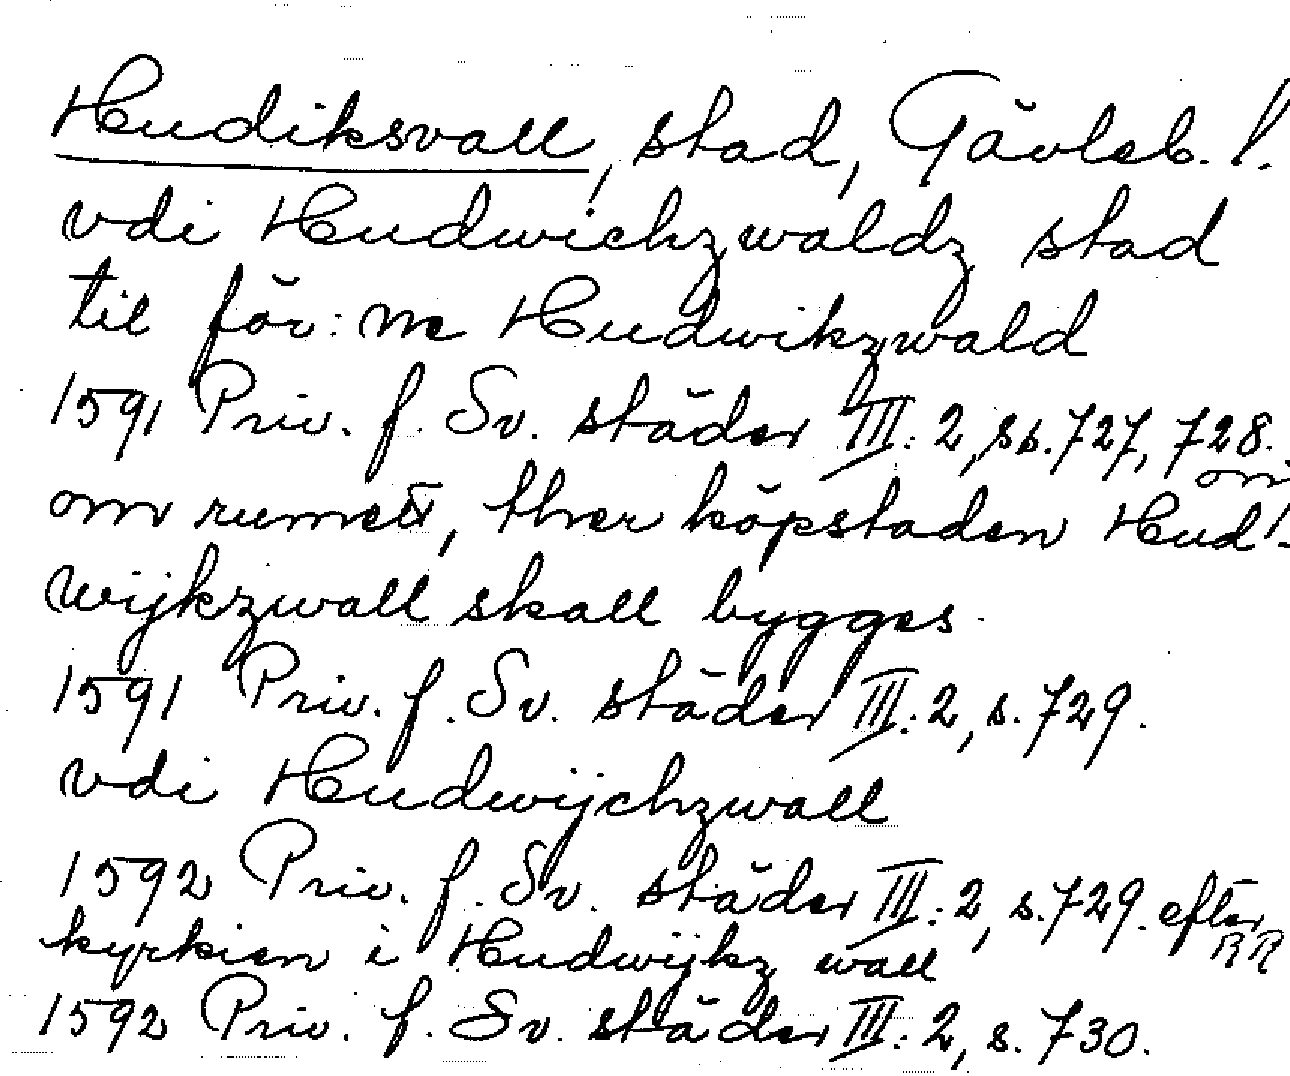 Hudiksvall, stad, Gävleb. l.
vdi Hudwichzwaldz stad
til för: ne Hudwikzwald
1591 Priv. f. Sv. städer III: 2, ss. 727, 728.
om
om rumett, ther köpstaden Hud-
wijkzwall skall bygges.
1591 Priv. f. Sv. städer III: 2, s. 729.
vdi Hudwijchzwall
1592 Priv. f. Sv. städer III: 2, s. 729. efter
RR
kyrkien i Hudwijkz wall
1592 Priv. f. Sv. städer III: 2, s. 730.